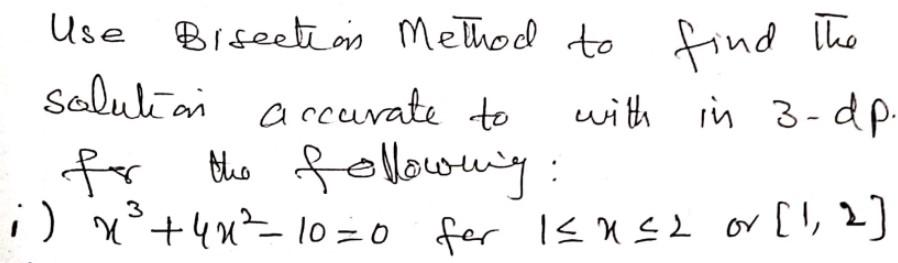 Use Bisection Method to find the
solution accurate to with in 3-dp.
for the following:
i) x³+4x²-10=0 for 1≤x≤2 or [1, 2]